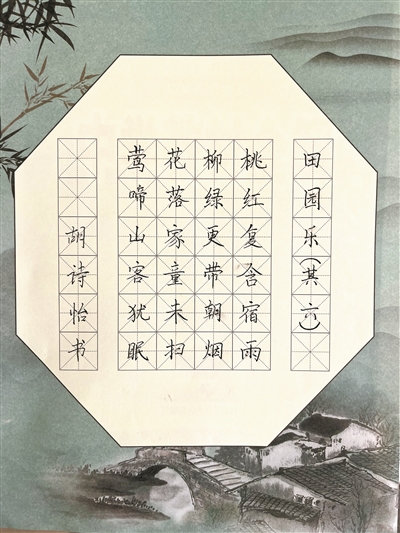 田园乐(其六)
桃红复含宿雨
柳绿更带朝烟
花落家童未扫
莺啼山客犹眠
胡诗怡书